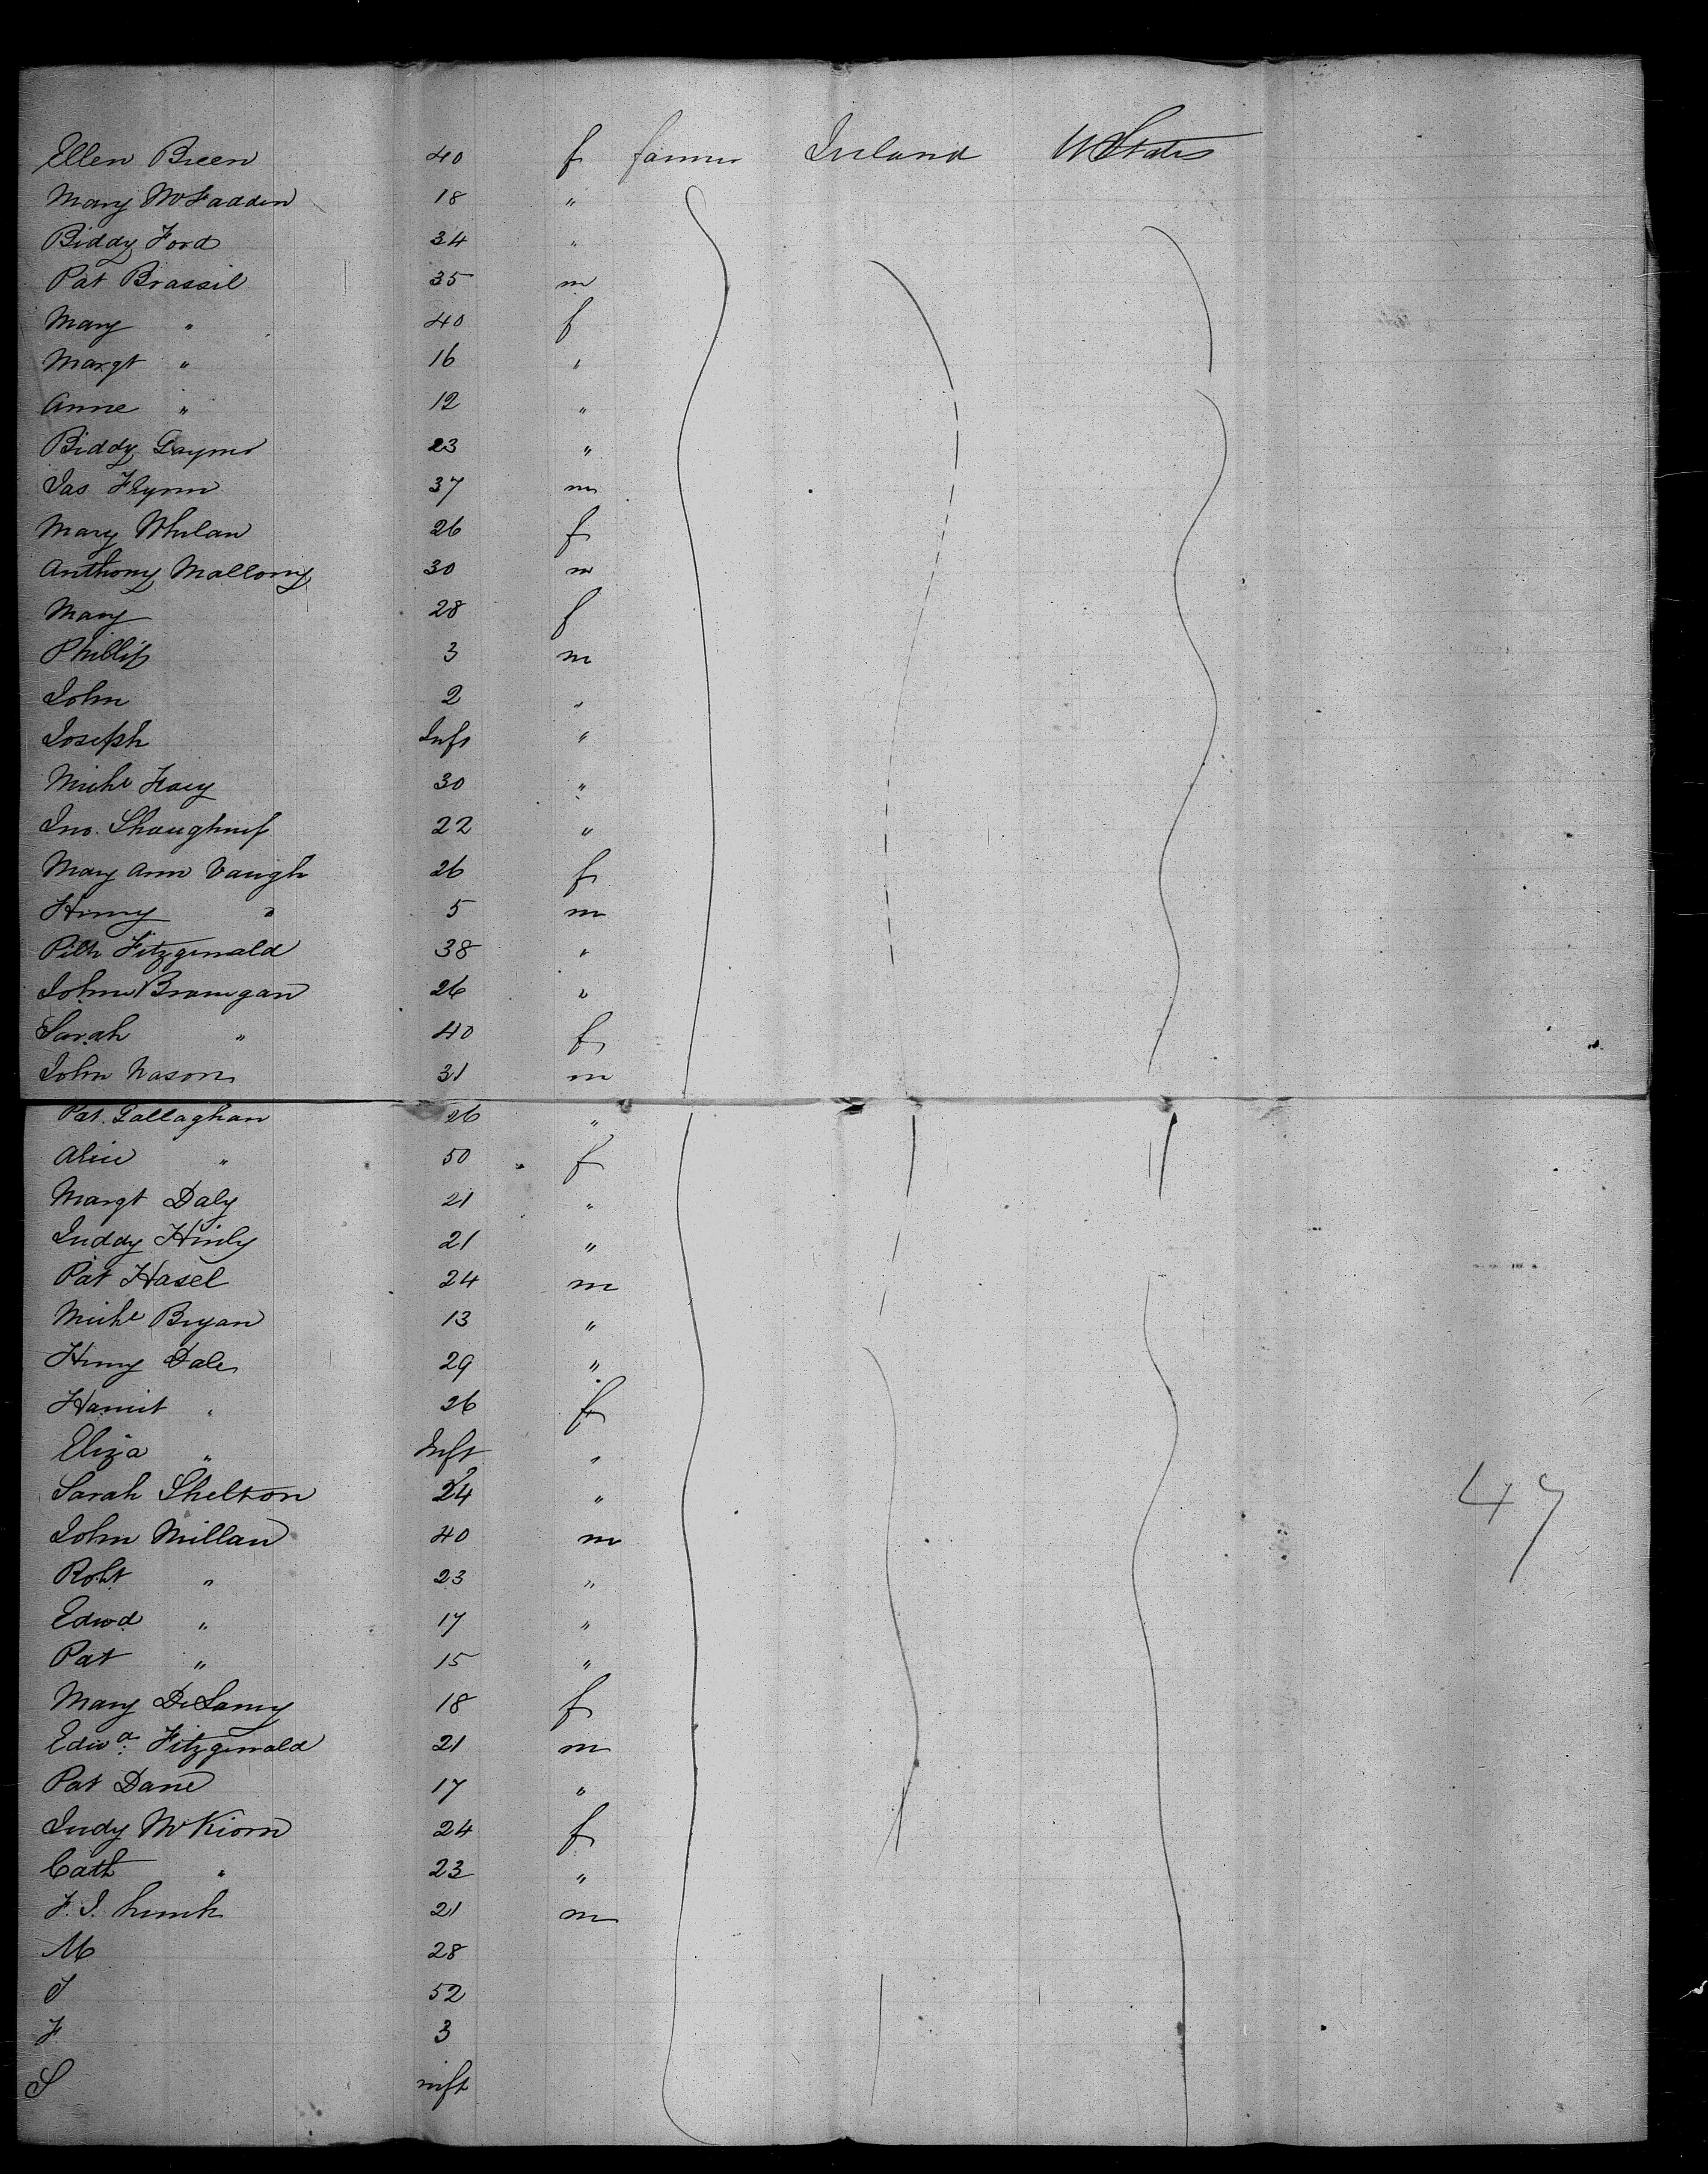 Ellen Breen 40 f farmer Ireland U States
Mary McFadden 18 "
Biddy Ford 34 "
Pat Brassil 35 m
Mary " 40 f
Margt " 16 "
Anne " 12 "
Biddy 23 "
Jas Flynn 37 m
Mary Whelan 26 f
Anthony Mallony 30 m
Mary 28 f
Phillip 3 m
John 2 "
Joseph Inft "
Michl 30 "
Jno. Shaughness 22 "
Mary Ann Vaugh 26 f
Henry " 5 m
Fitzgerald 38 "
John Branigan 26 "
Sarah " 40 f
John Nason 31 m
Pat. Gallaghan 26 "
Alice " 50 f
Margt Daly 21 "
21 "
Pat Hasel 24 m
Michl Bryan 13 "
Henry Dale 29 "
Harriet " 26 f
Eliza " Inft "
Sarah Shelton 24 "
John Millan 40 m
Robt " 23 "
Edwd " 17 "
Pat " 15 "
Mary DeLaney 18 f
Edwd. Fitzgerald 21 m
Pat Dane 17 "
Judy McKiorn 24 f
Cath " 23 "
F. J. 21 m
M 28
J 52
F 3
S inft
47